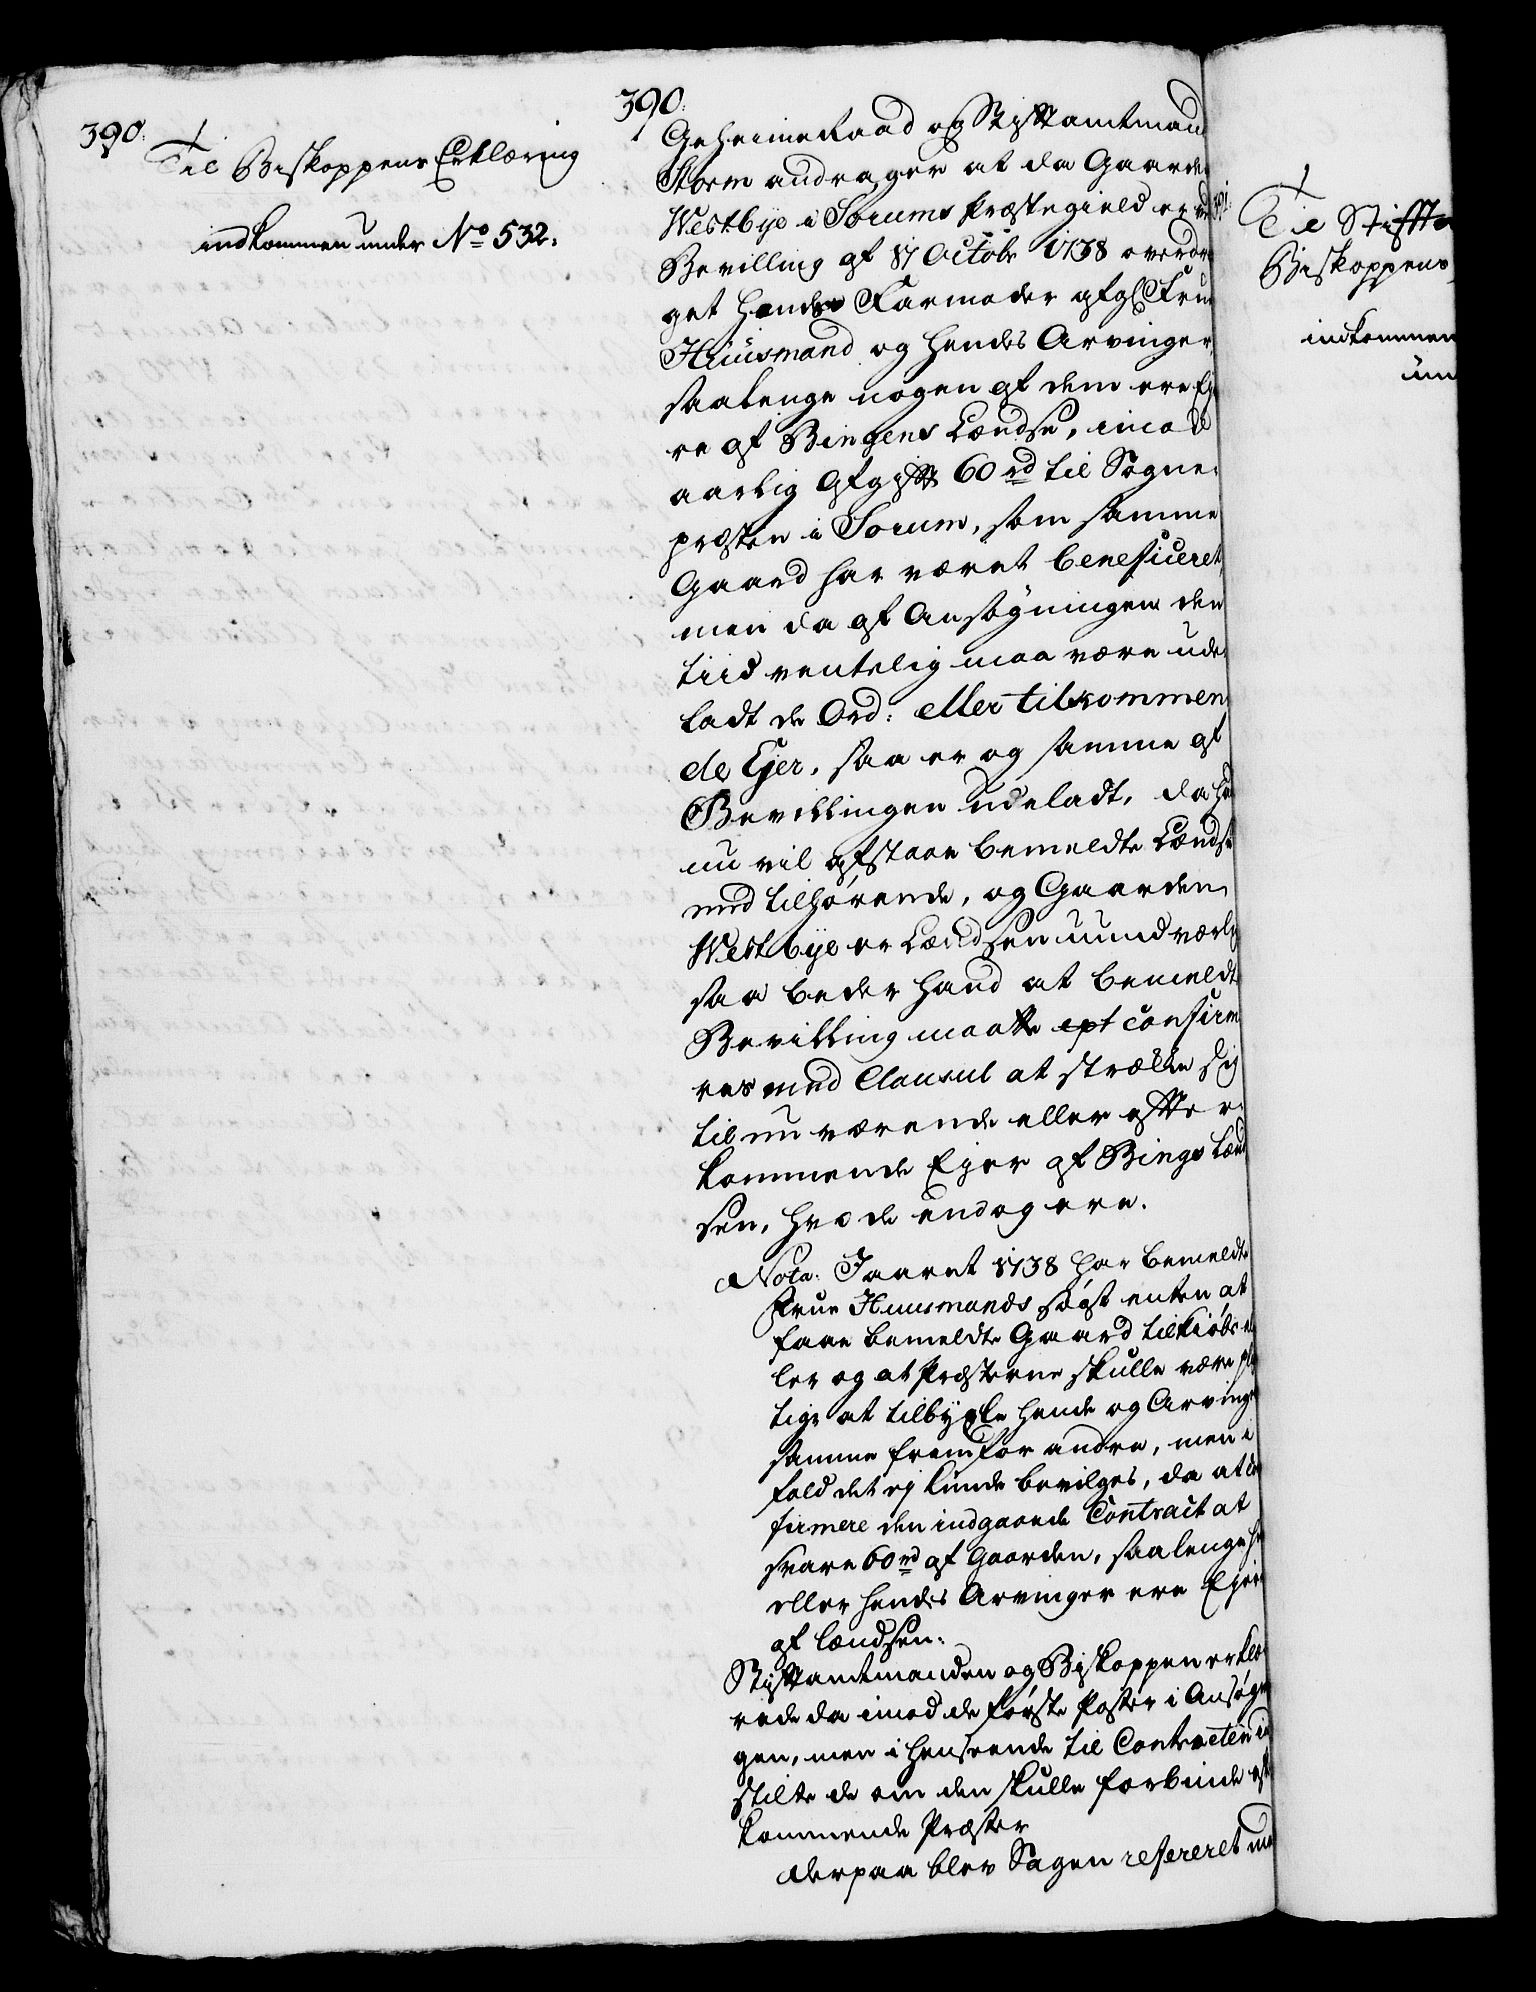 390.
Til Biskoppens Erklæring
indkommen under No 532.
390.
Geheime Raad og Stiftamtmand
Storm andrager at da Gaarden
Westbye i Sørums Præstegield er ved
Bevilling af 17 Octobr 1738 overdra
get hendes Farmoder afgl Frue
Huusmand og hendes Arvinger,
saalenge nogen af dem ere Eje
re af Bingens Lændse, imod
aarlig Afgift 60 rd til Sogne-
præsten i Sørum, som samme
Gaard har været beneficeret,
men da af Ansøgningen den
tiid ventelig maa være ude-
ladt de Ord: eller tilkommen
de Ejer, saa er og samme af
Bevillingen udeladt, da hand
nu vil afstaae bemeldte Lændse
med tilhørende, og Gaarden
Westbye er Lændsen uundværlig
saa beder hand at bemeldte
Bevilling maatte confirme
res med Clausul at strække sig
til nu værende eller effter-
kommende Ejer af Bings Lænd
sen, hvo de endog ere.
Nota. I aaret 1738 har bemeldte
Frue Huusmands søgt enten at
faae bemeldte Gaard tilkiøbs el
ler og at Præsterne skulle være plig
tige at tilbyxle hende og Arvinger
samme fremfor andre, men i
fald det ej kunde bevilges, da at con
firmere den indgaaede Contract at
svare 60 rd af Gaarden, saalenge hun
eller hendes Arvinger ere Ejere
af Lændsen.
Stiftamtmanden og Biskoppen erklæ
rede da imod de første Poster i Ansøgnin
gen, men i henseende til Contracten ind
stilte de om den skulle forbinde eft
kommende Præster
derpaa blev Sagen refereret med
391.
Til Stiffts
Biskoppens
indkommen
un